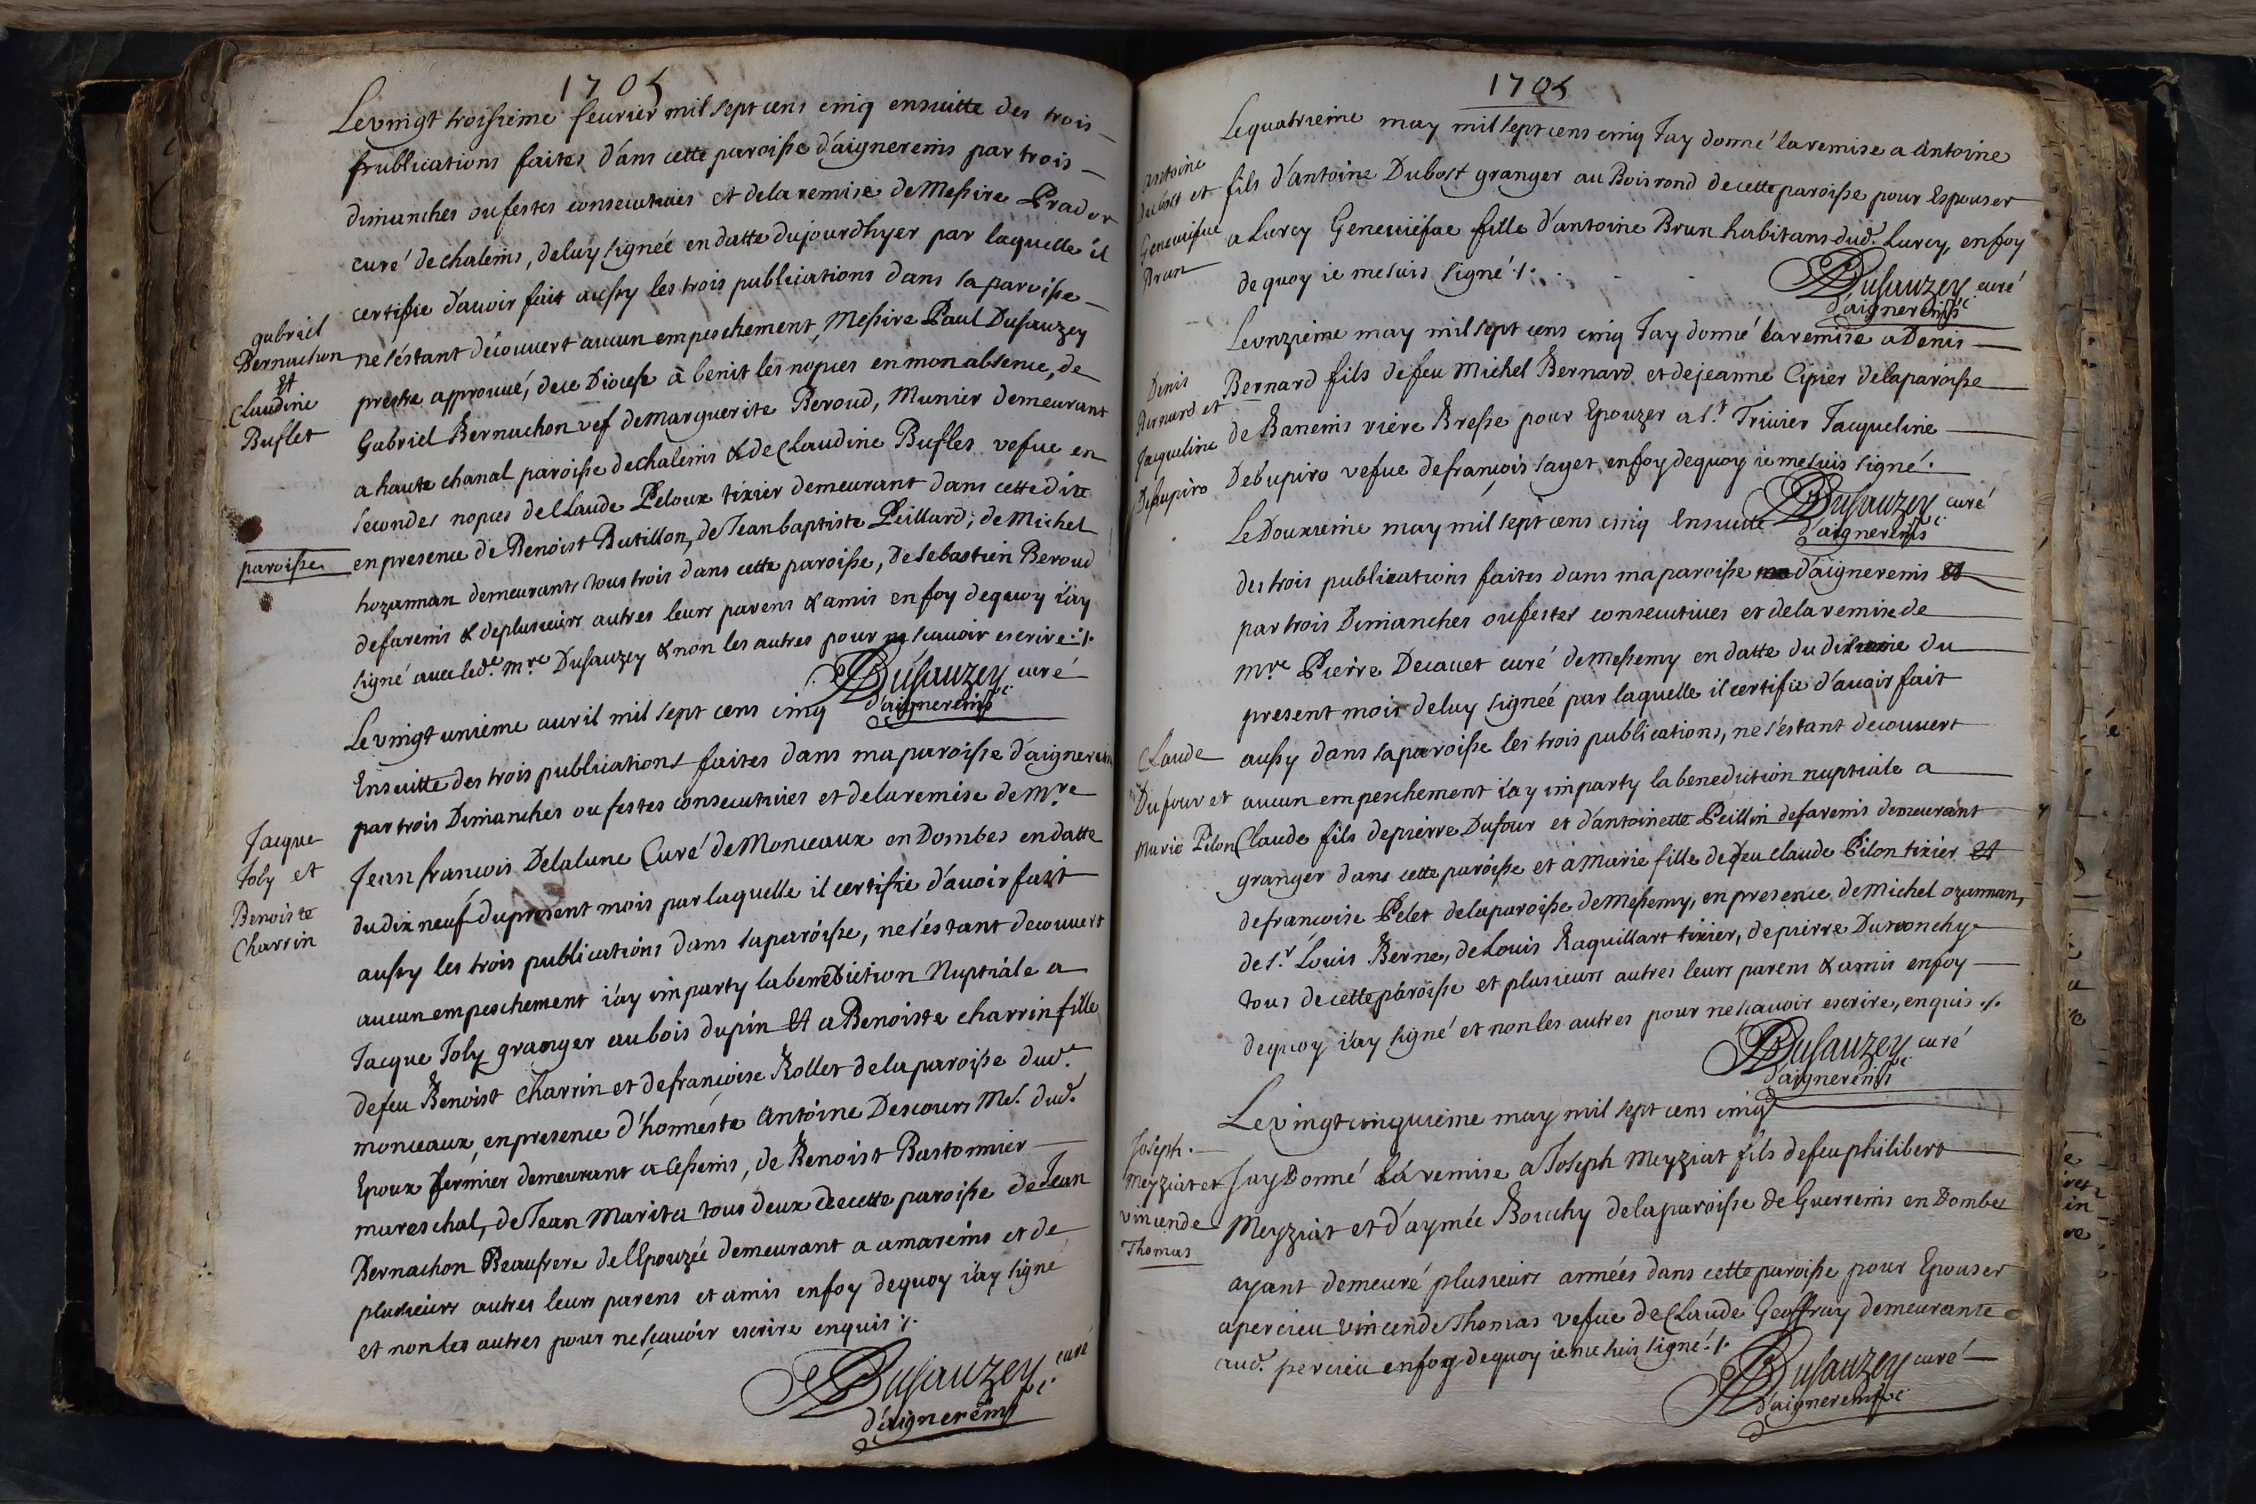 1705
Le vingt troisieme feurier mil sept cens cinq ensuitte des trois
publications faites dans cette paroisse d'aignereins par trois
dimanches ou festes consecutiues et de la remise de Messire Prador
curé de chaleins, de luy signée en datte du jourdhyer par laquelle il
certifie d'auoir fait aussy les trois publications dans sa paroisse
gabriel
Bernachon
et
Claudine
Buflet
ne s'éstant découuert aucun empeschement, Messire Paul Dusauzey
prestre approuué, de ce Diocese à bénit les nopces en mon absence, de
Gabriel Bernachon vef de Marguerite Beroud, Munier demeurant
a haute chanal paroisse de chaleins & de Claudine Buflet vefue en
secondes nopces de Claude Peloux tixier demeurant dans cette dite
paroisse
en presence de Benoist Butillon, de Jean baptiste Peillard, de Michel
hozannan demeurants tous trois dans cette paroisse, de Sebastien Beroud
de fareins & de plusieurs autres leurs parens & amis en foy de quoy i'ay
signé auec led.e M.re Dusauzey & non les autres pour ne scauoir escrire ./.
Dusauzey curé
d'aignereins
Le vingt unieme auril mil sept cens cinq
Ensuitte des trois publications faites dans ma paroisse d'aignereins
par trois Dimanches ou festes consecutiues et de la remise de M.re
Jacque
Joly et
Benoiste
Charrin
Jean francois Delalune Curé de Monceaux en Dombes en datte
du dix neuf du present mois par laquelle il certifie d'auoir fait
aussy les trois publications dans sa paroisse, ne s'éstant decouuert
aucun empeschement i'ay imparty la benediction Nuptiale a
Jacque Joly granger au bois dupin et a Benoiste charrin fille
de feu Benoist Charrin et de francoise Rollet de la paroisse dud.
monceaux, en presence d'honneste Antoine Descours Me. dud.
Epoux fermier demeurant a Cesseins, de Benoist Bastonnier
mareschal, de Jean Marita tous deux de cette paroisse de Jean
Bernachon Beaufrere de l'Epouzée demeurant a amareins et de
plusieurs autres leurs parens et amis en foy de quoy i'ay signé
et non les autres pour ne scauoir escrire enquis ./.
Dusauzey curé
d'aignereins
1705
Le quatrieme may mil sept cens cinq Jay donné la remise a Antoine
Antoine
dubost et
Geneuiefue
Brun
fils d'antoine Dubost granger au Boisrond de cette paroisse pour Espouser
a Lurcy Geneuiéfue fille d'antoine Brun habitans dud. Lurcy, en foy
de quoy ie me suis signé ./.
Dusauzey curé
d'aignereins
Le onzieme may mil sept cens cinq Jay donné la remise a Denis
Denis
Bernard et
Jacqueline
Debupiro
Bernard fils de feu Michel Bernard et de jeanne Cipier de la paroisse
de Baneins riere Bresse pour Epouzer a S.t Triuier Jacqueline
Debupiro vefue de francois sayet en foy de quoy ie me suis signé.
Dusauzey curé
d'aignereins
Le Douxieme may mil sept cens cinq Ensuitte
des trois publications faites dans ma paroisse d'aignereins et
par trois Dimanches ou festes consecutiues et de la remise de
M.re Pierre Decauet curé de Messemy en datte du dixieme du
present mois de luy signeé par laquelle il certifie d'auoir fait
Claude
Dufour et
Marie Pilon
aussy dans sa paroisse les trois publications, ne s'éstant decouuert
aucun empeschement i'ay imparty la benediction nuptiale a
Claude fils de pierre Dufour et d'antoinette Peillin de fareins demeurant
granger dans cette paroisse et a Marie fille de feu Claude Pilon tixier et
de francoise Pelet de la paroisse de Messemy, en presence de Michel ozannan,
de S.r Louis Berne, de Louis Raquillart tixier, de pierre Duronchy
tous de cette paroisse et plusieurs autres leurs parens & amis en foy
de quoy i'ay signé et non les autres pour ne scauoir escrire, enquis ./.
Dusauzey curé
d'aignereins
Le vingt cinquieme may mil sept cens cinq
Joseph
meyziat et
vincende
Thomas
Jay Donné la remise a Joseph Meyziat fils de feu philibert
Meyziat et d'aymée Bouchy de la paroisse de Guerreins en Dombes
ayant demeuré plusieurs années dans cette paroisse pour Epouser
a percieu vincende Thomas vefue de Claude Geoffray demeurante
aud. percieu en foy de quoy ie me suis signé ./.
Dusauzey curé
d'aignereins